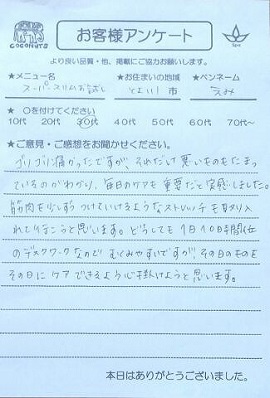 COCONUTS
お客様アンケート
Spa
より良い品質・他、掲載にご協力お願いします。
★メニュー名 ★お住まいの地域 ★ペンネーム
スーパースリムお試し 市 えみ
★ ○を付けてください
10代 20代 30代 40代 50代 60代 70代~
★ご意見・ご感想をお聞かせください。
ゴリゴリ痛かったですが、それだけ悪いものもたまっ
ているのがわかり、毎日のケアも重要だと実感しました。
筋肉を少しずつつけていけるようなストレッチを取り入
れて行こうと思います。どうしても1日10時間位
のデスクワークなので むくみやすいですが、その日のものを
その日に ケアできるよう心掛けようと思います。
本日はありがとうございました。